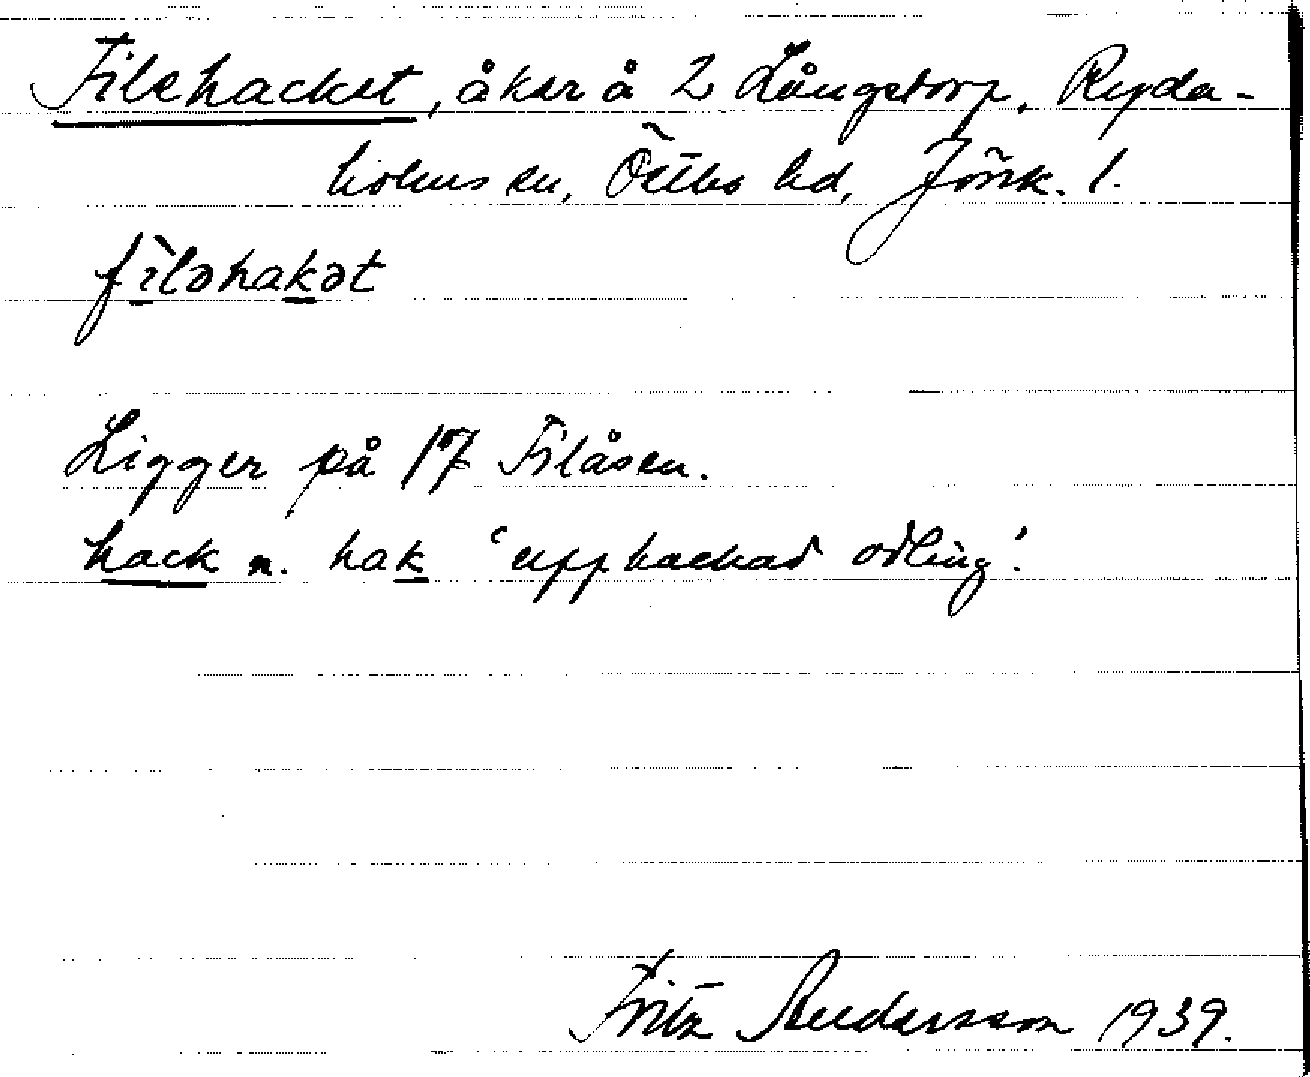 Filehacket, åker å 2 Långstorp, Ryda-
holms sn, Östbo hd, Jönk. l.
fìləhakət
Ligger på 17 Filåsen.
hack n. hak 'upphackad odling'.
Fritz Andersson 1939.